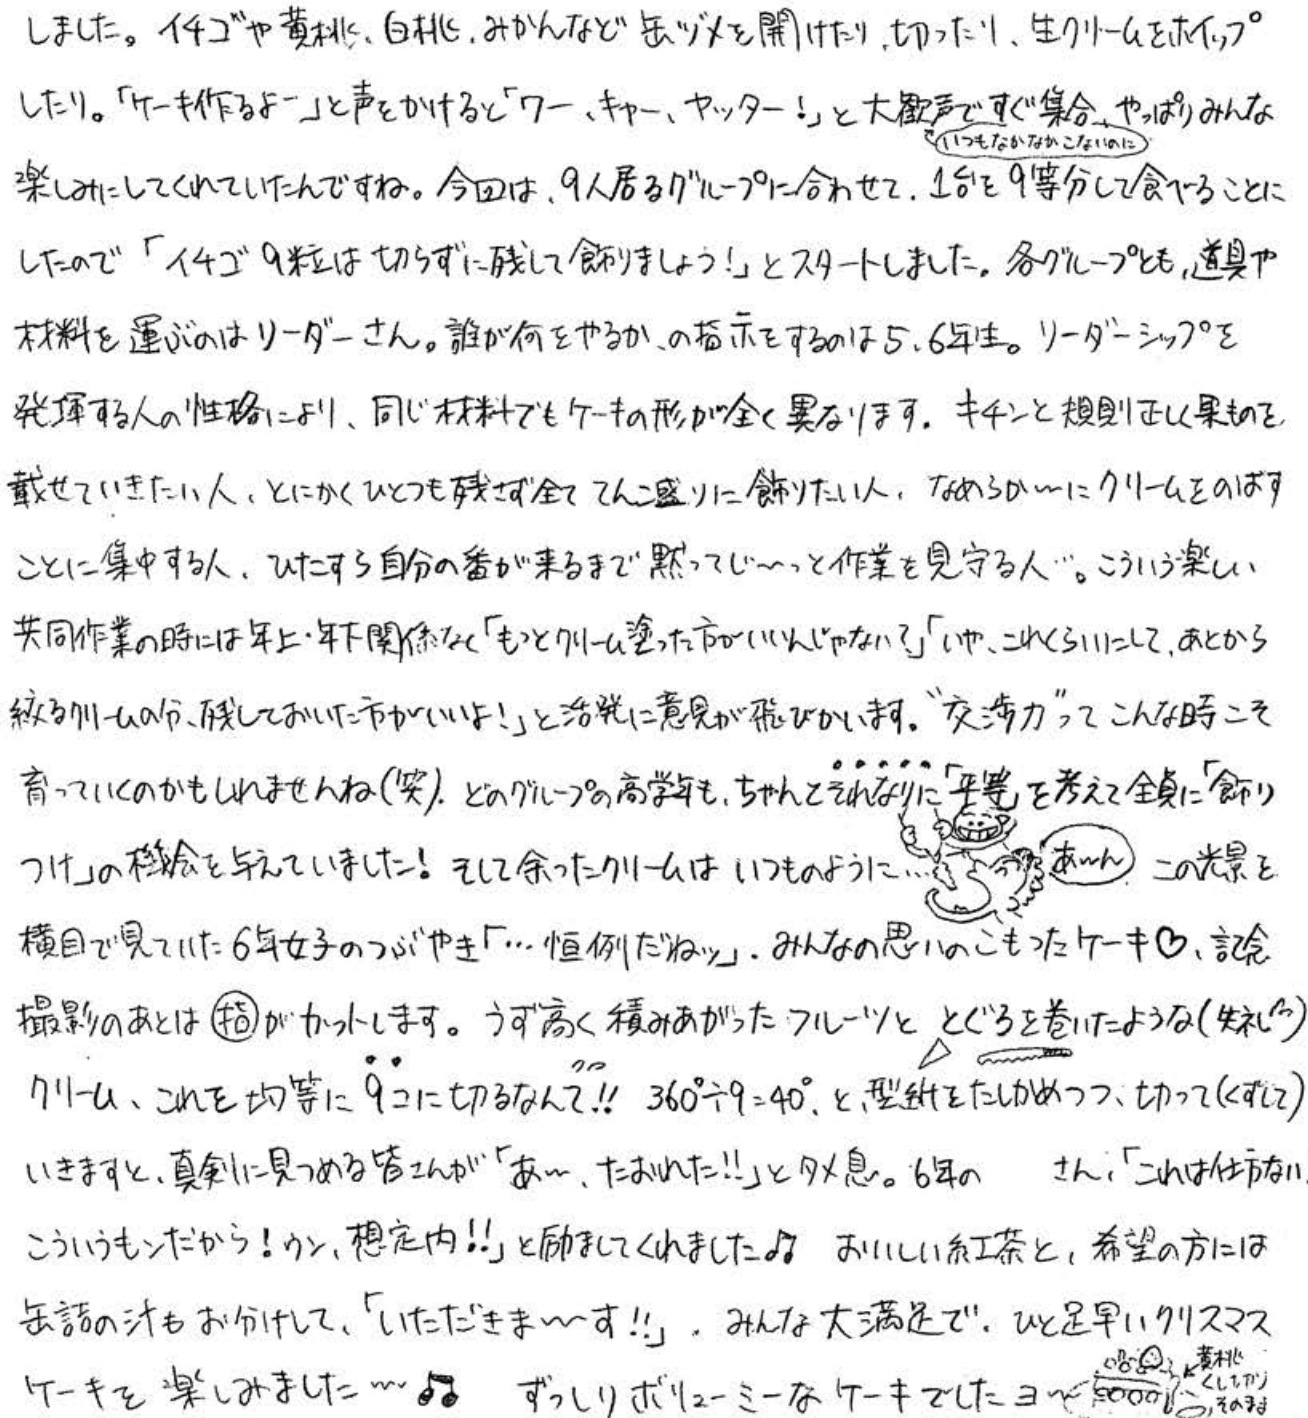 しました。イチゴや黄桃、白桃、みかんなど缶ヅメを開けたり、切ったり、生クリームをホイップ
したり。「ケーキ作るよー」と声をかけると「ワー、キャー、ヤッター！」と大歓声ですぐ集合、やっぱりみんな
いつもなかなかこないのに
楽しみにしてくれていたんですね。今回は、9人居るグループに合わせて、1台を9等分して食べることに
したので「イチゴ9粒は切らずに残して飾りましょう！」とスタートしました。各グループとも、道具や
材料を運ぶのはリーダーさん。誰が何をやるか、の指示をするのは5、6年生。リーダーシップを
発揮する人の性格により、同じ材料でもケーキの形が全く異なります。キチンと規則正しく果ものを
載せていきたい人、とにかくひとつも残さず全ててんこ盛りに飾りたい人、なめらか〜にクリームをのばす
ことに集中する人、ひたすら自分の番が来るまで黙ってじ〜っと作業を見守る人…。こういう楽しい
共同作業の時には年上・年下関係なく「もっとクリーム塗った方がいいんじゃない？」「いや、これくらいにして、あとから
絞るクリームの分、残しておいた方がいいよ！」と活発に意見が飛びかいます。“交渉力”ってこんな時こそ
育っていくのかもしれませんね（笑）。どのグループの高学年も、ちゃんとそれなりに「平等」を考えて全員に「飾り
つけ」の機会を与えていました！そして余ったクリームはいつものように… あ〜ん この光景を
横目で見ていた6年女子のつぶやき「…恒例だねッ」。みんなの思いのこもったケーキ♡、記念
撮影のあとは指がカットします。うず高く積みあがったフルーツととぐろを巻いたような（失礼）
クリーム、これを均等に9コに切るなんて!! 360°÷9=40°、と、型紙をたしかめつつ、切って（くずして）
いきますと、真剣に見つめる皆さんが「あ〜、たおれた!!」とタメ息。6年の さん、「これは仕方ない
こういうもンだから！ウン、想定内!!」と励ましてくれました♫ おいしい紅茶と、希望の方には
缶詰の汁もお分けして、「いただきま〜〜す!!」。みんな大満足で、ひと足早いクリスマス
ケーキを楽しみました…♫ ずっしりボリューミーなケーキでしたヨ〜
黄桃
くしカリ
そのまま